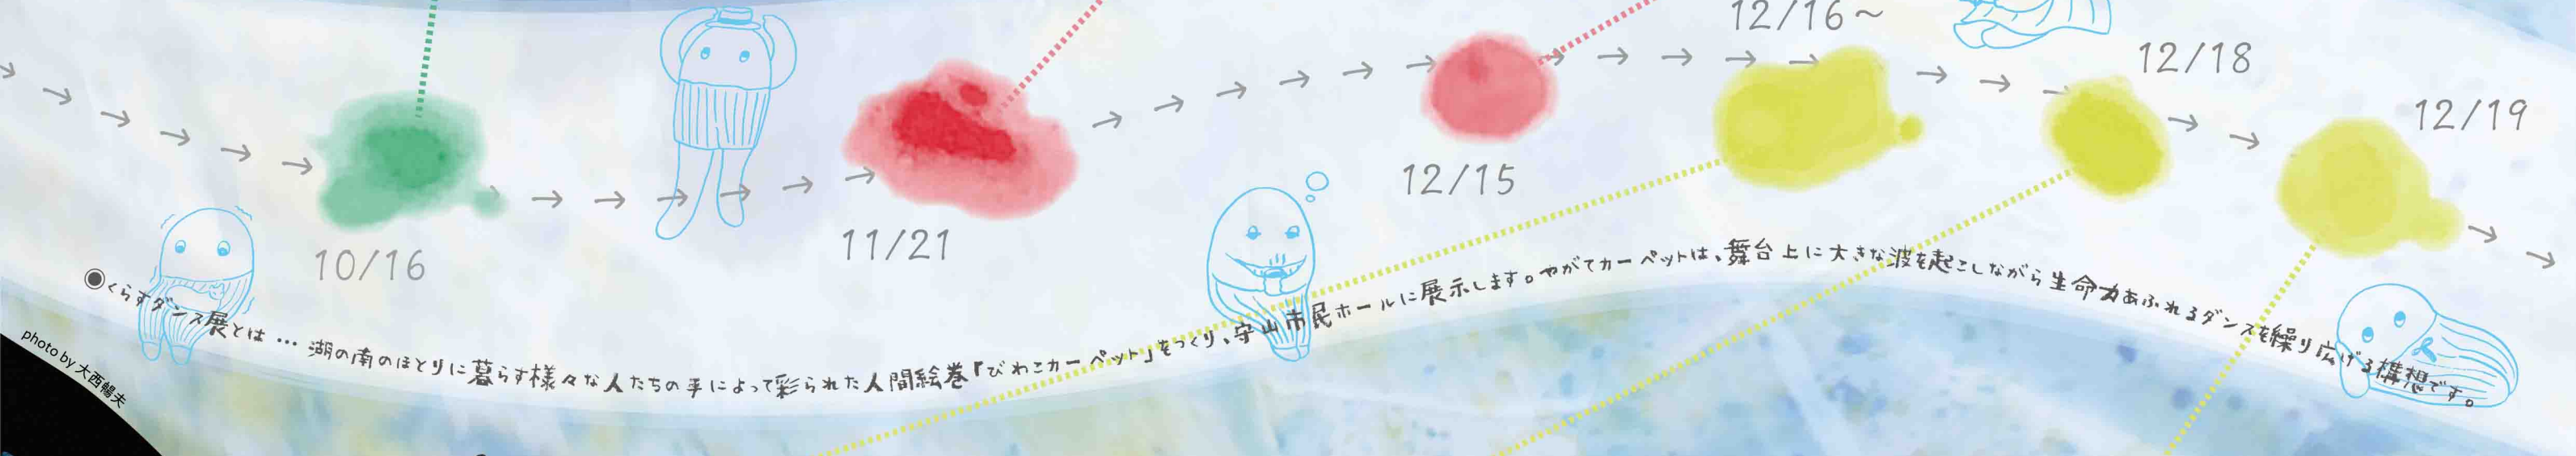 12/16~
12/18
12/19
12/15
11/21
10/16
◉くらすダンス展とは … 湖の南のほとりに暮らす様々な人たちの手によって彩られた人間絵巻「びわこカーペット」をつくり、守山市民ホールに展示します。やがてカーペットは、舞台上に大きな波を起こしながら生命力あふれるダンスを繰り広げる構想です。
photo by 大西暢夫